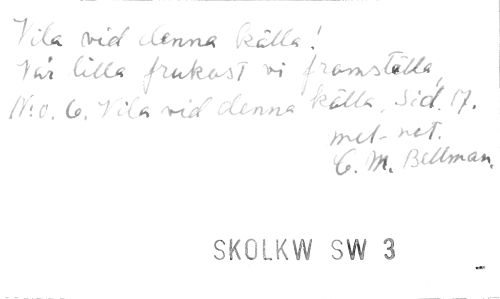 Vila vid denna källa!
Vår lilla frukost vi framställa,
N:o. 6. Vila vid denna källa. Sid. 17.
mel. not.
C. M. Bellman.
SKOLKW SW 3